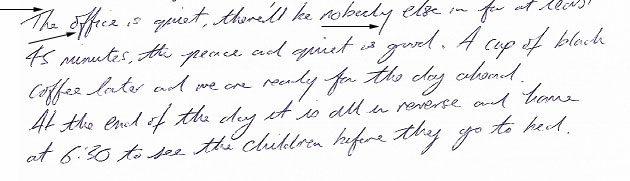 The office is quiet, there'll be nobody else in for at least
45 minutes, the peace and quiet is good. A cup of black
coffee later and we are ready for the day ahead.
At the end of the day it is all in reverse and home
at 6.30 to see the children before they go to bed.